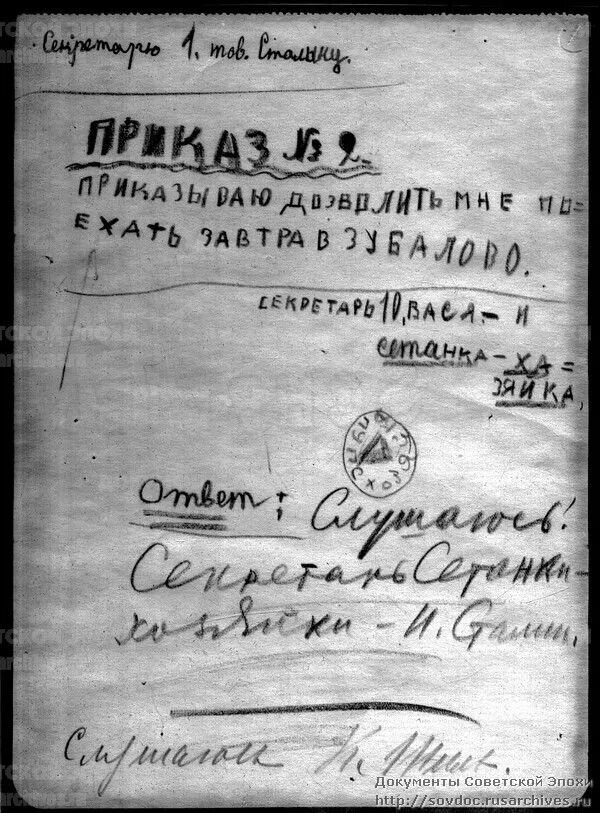 Секретарю 1. тов. Сталину.
ПРИКАЗ № 2.
ПРИКАЗЫВАЮ ДОЗВОЛИТЬ МНЕ ПО=
ЕХАТЬ ЗАВТРА В ЗУБАЛОВО.
СЕКРЕТАРЬ 10, ВАСЯ - И
СЕТАНКА - ХА=
ЗЯЙКА,
Ответ:
Слушаюсь!
Секретарь Сетанки-
хозяйки - И. Сталин.
Слушаюсь
Документы Советской Эпохи
http://sovdoc.rusarchives.ru/